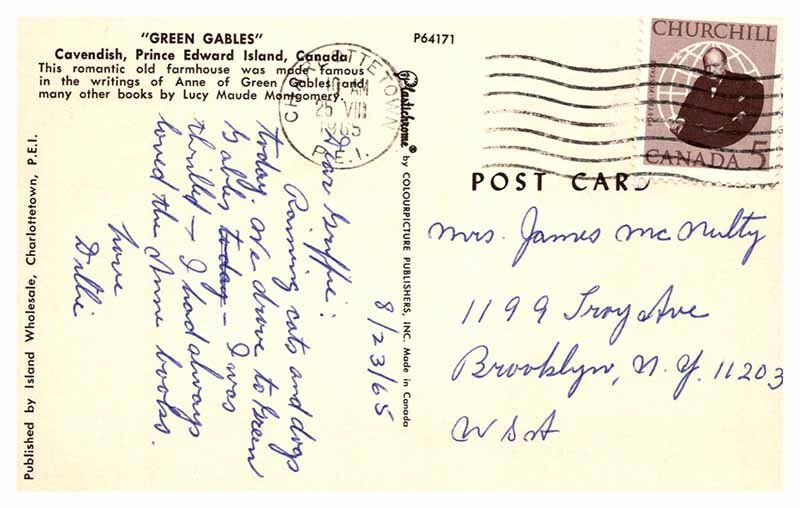 "GREEN GABLES"
Cavendish, Prince Edward Island, Canada
This romantic old farmhouse was made famous
in the writings of Anne of Green Gables and
many other books by Lucy Maude Montgomery.
P64171
CHARLOTTETOWN
10 AM
25 VIII
1965
P.E.I.
CHURCHILL
POSTES POSTAGE
CANADA 5
POST CARD
Published by Island Wholesale, Charlottetown, P.E.I.
Plastichrome® by COLOURPICTURE PUBLISHERS, INC. Made in Canada
8/23/65
Dear Griffie:
Raining cats and dogs
today. We drove to Green
Gables today – I was
thrilled – I had always
loved the Anne books.
Love
Dillie
Mrs. James McNulty
1199 Troy Ave
Brooklyn, N.Y. 11203
USA